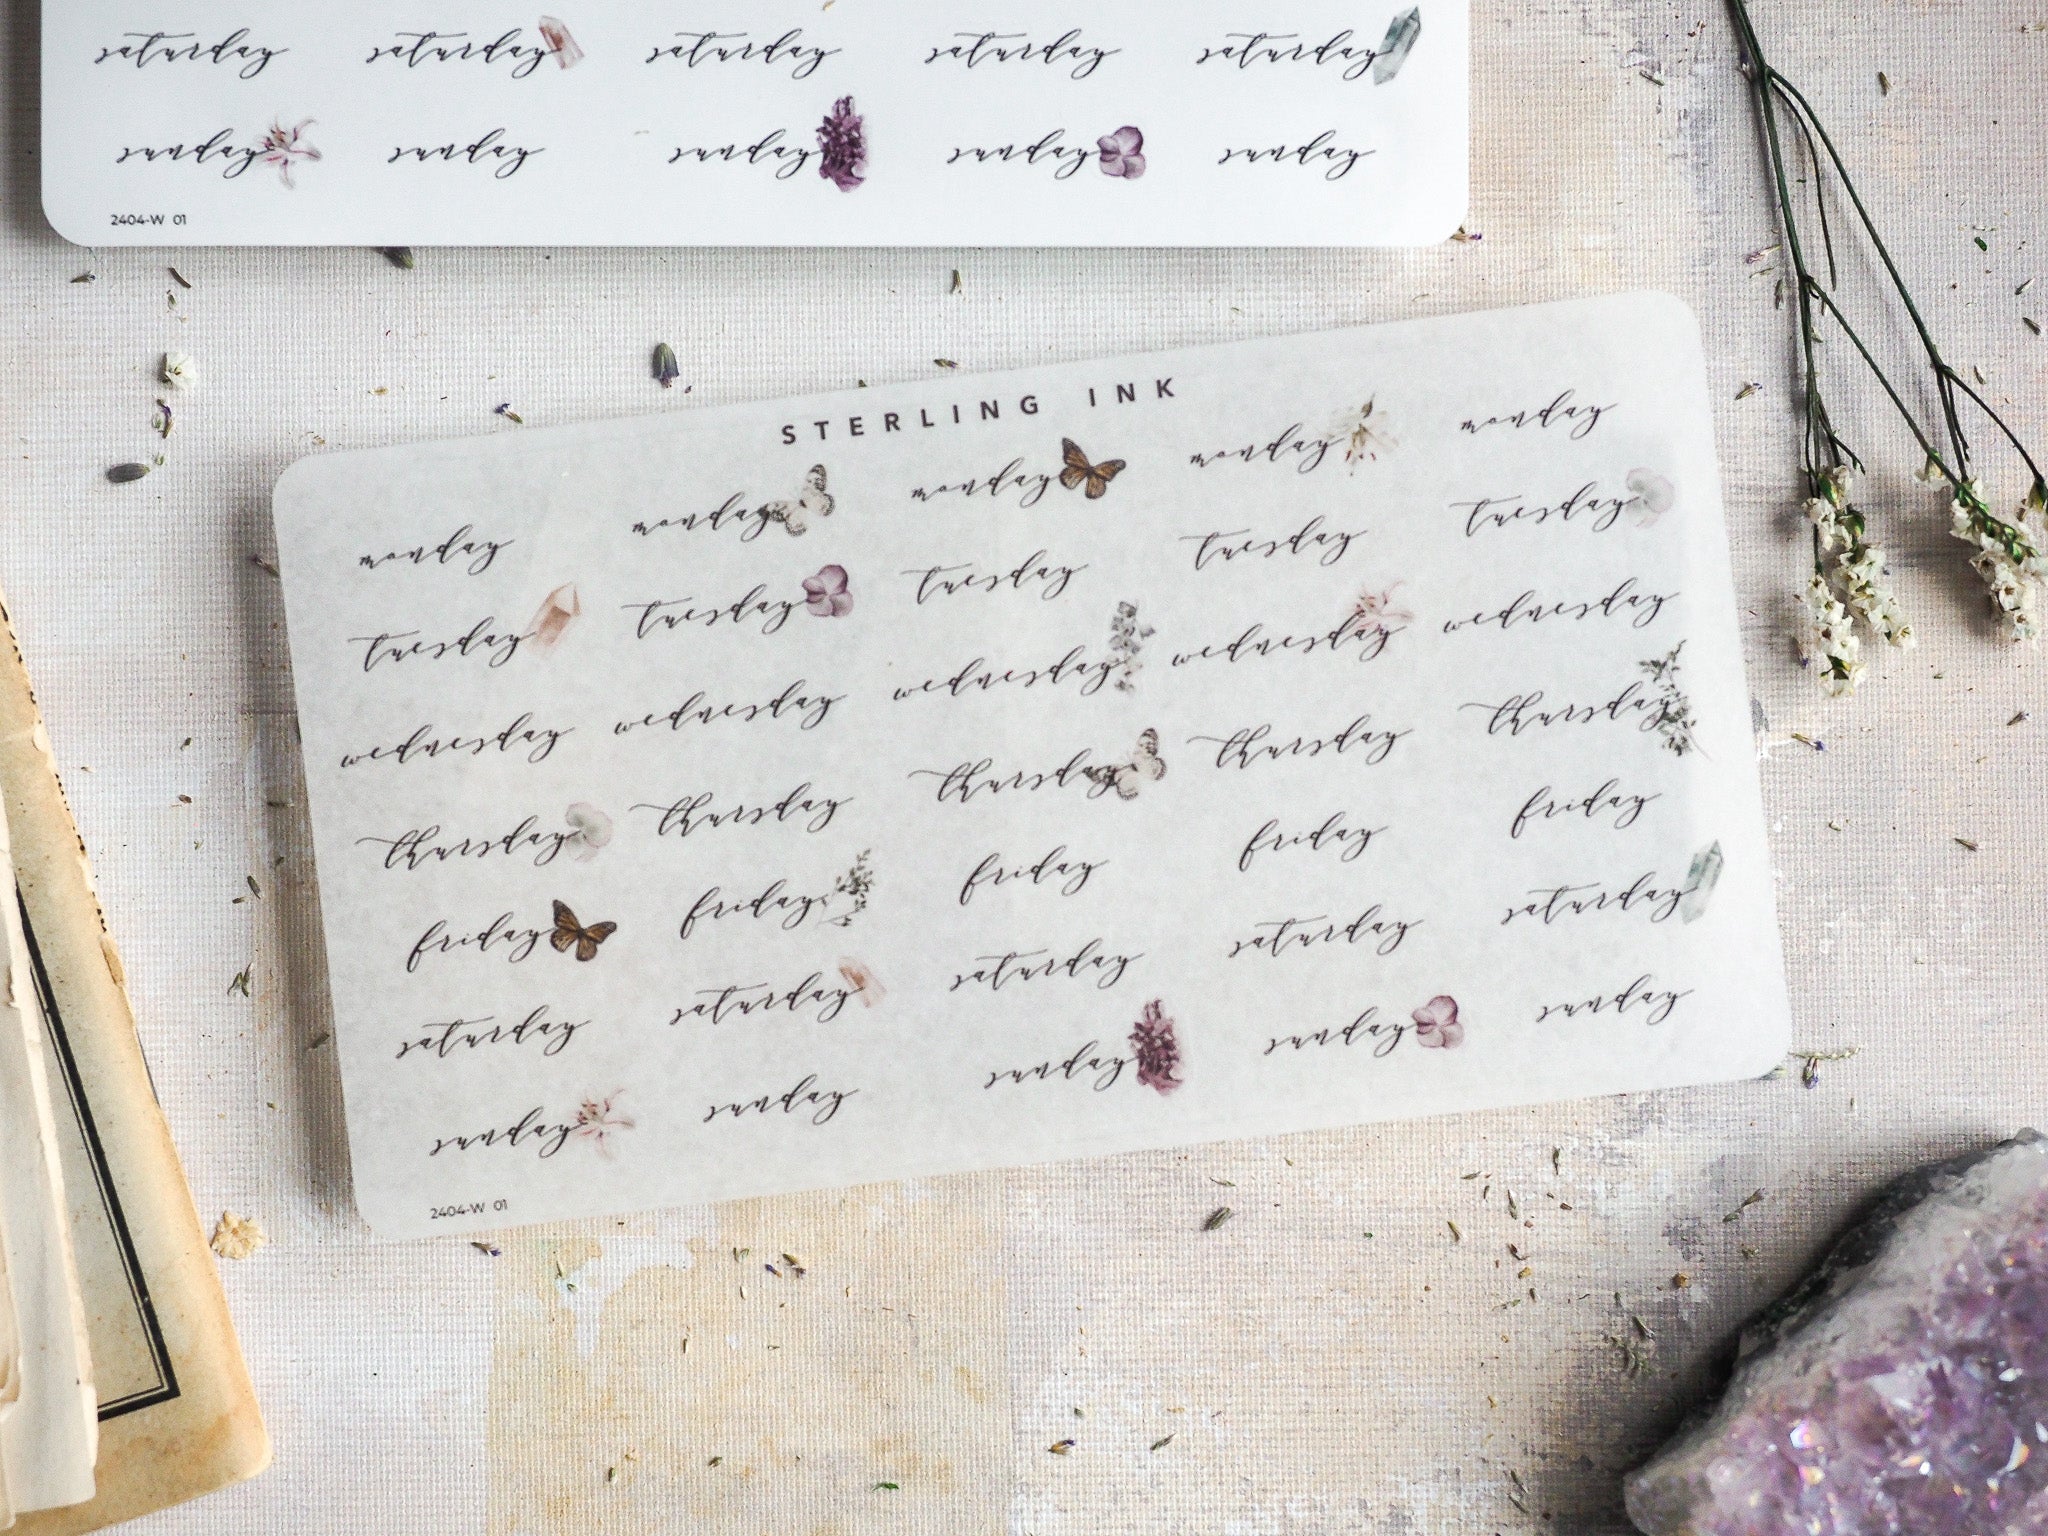 saturday saturday saturday saturday saturday
sunday sunday sunday sunday sunday
2404-W 01
STERLING INK
monday monday monday monday monday
tuesday tuesday tuesday tuesday tuesday
wednesday wednesday wednesday wednesday wednesday
thursday thursday thursday thursday thursday
friday friday friday friday friday
saturday saturday saturday saturday saturday
sunday sunday sunday sunday sunday
2404-W 01